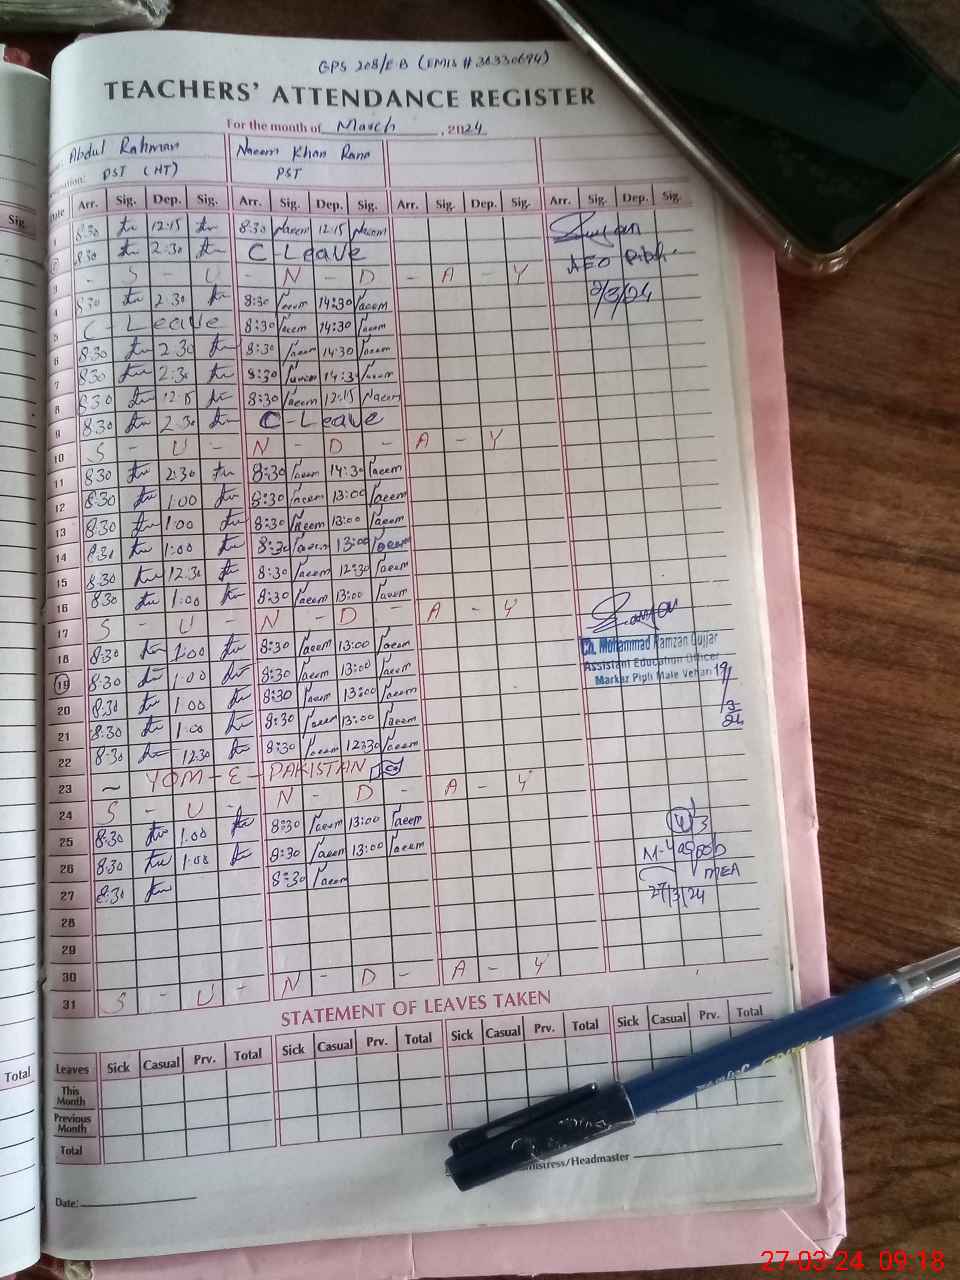 GPS 208/EB (EMIS # 36330694)
TEACHERS' ATTENDANCE REGISTER
For the month of March, 2024
Abdul Rahman Naeem Khan Rana
PST (HT) PST
Date Arr. Sig. Dep. Sig. Arr. Sig. Dep. Sig. Arr. Sig. Dep. Sig. Arr. Sig. Dep. Sig.
1 8:30 12:15 8:30 Naeem 12:15 Naeem
2 8:30 2:30 C-Leave
AEO
2/3/24
3 S - U - N - D - A - Y
4 8:30 2:30 8:30 Naeem 14:30 Naeem
5 C - Leave 8:30 Naeem 14:30 Naeem
6 8:30 2:30 8:30 Naeem 14:30 Naeem
7 8:30 2:30 8:30 Naeem 14:3 Naeem
8 8:30 12:15 8:30 Naeem 12:15 Naeem
9 8:30 2:30 C-Leave
10 S - U - N - D - A - Y
11 8:30 2:30 8:30 Naeem 14:30 Naeem
12 8:30 1:00 8:30 Naeem 13:00 Naeem
13 8:30 1:00 8:30 Naeem 13:00 Naeem
14 8:30 1:00 8:30 Naeem 13:00 Naeem
15 8:30 12:30 8:30 Naeem 12:30 Naeem
16 8:30 1:00 8:30 Naeem 13:00 Naeem
17 S - U - N - D - A - Y
18 8:30 1:00 8:30 Naeem 13:00 Naeem
Ch. Mohammad Ramzan Gujjar
Assistant Education Officer
Markaz Pipli Male Vehari
19/3/24
19 8:30 1:00 8:30 Naeem 13:00 Naeem
20 8:30 1:00 8:30 Naeem 13:00 Naeem
21 8:30 1:00 8:30 Naeem 13:00 Naeem
22 8:30 12:30 8:30 Naeem 12:30 Naeem
23 YOM-E-PAKISTAN D A - Y
24 S - U - N - D - A - Y
25 8:30 1:00 8:30 Naeem 13:00 Naeem
26 8:30 1:00 8:30 Naeem 13:00 Naeem
27 8:30 8:30 Naeem
M-Yaqoob
MEA
27/3/24
28
29
30
31 S - U - N - D - A - Y
STATEMENT OF LEAVES TAKEN
Leaves Sick Casual Prv. Total Sick Casual Prv. Total Sick Casual Prv. Total Sick Casual Prv. Total
This Month
Previous Month
Total
mistress/Headmaster
Date:
Sig.
Total
27-03-24 09:18